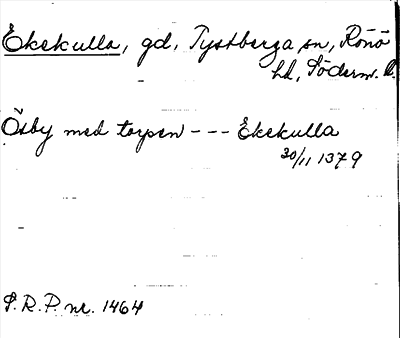 Ekekulla, gd, Tystberga sn, Rönö
hd, Söderm. l.
Ösby med torpen - - - Ekekulla
30/11 1379
S.R.P. nr. 1464